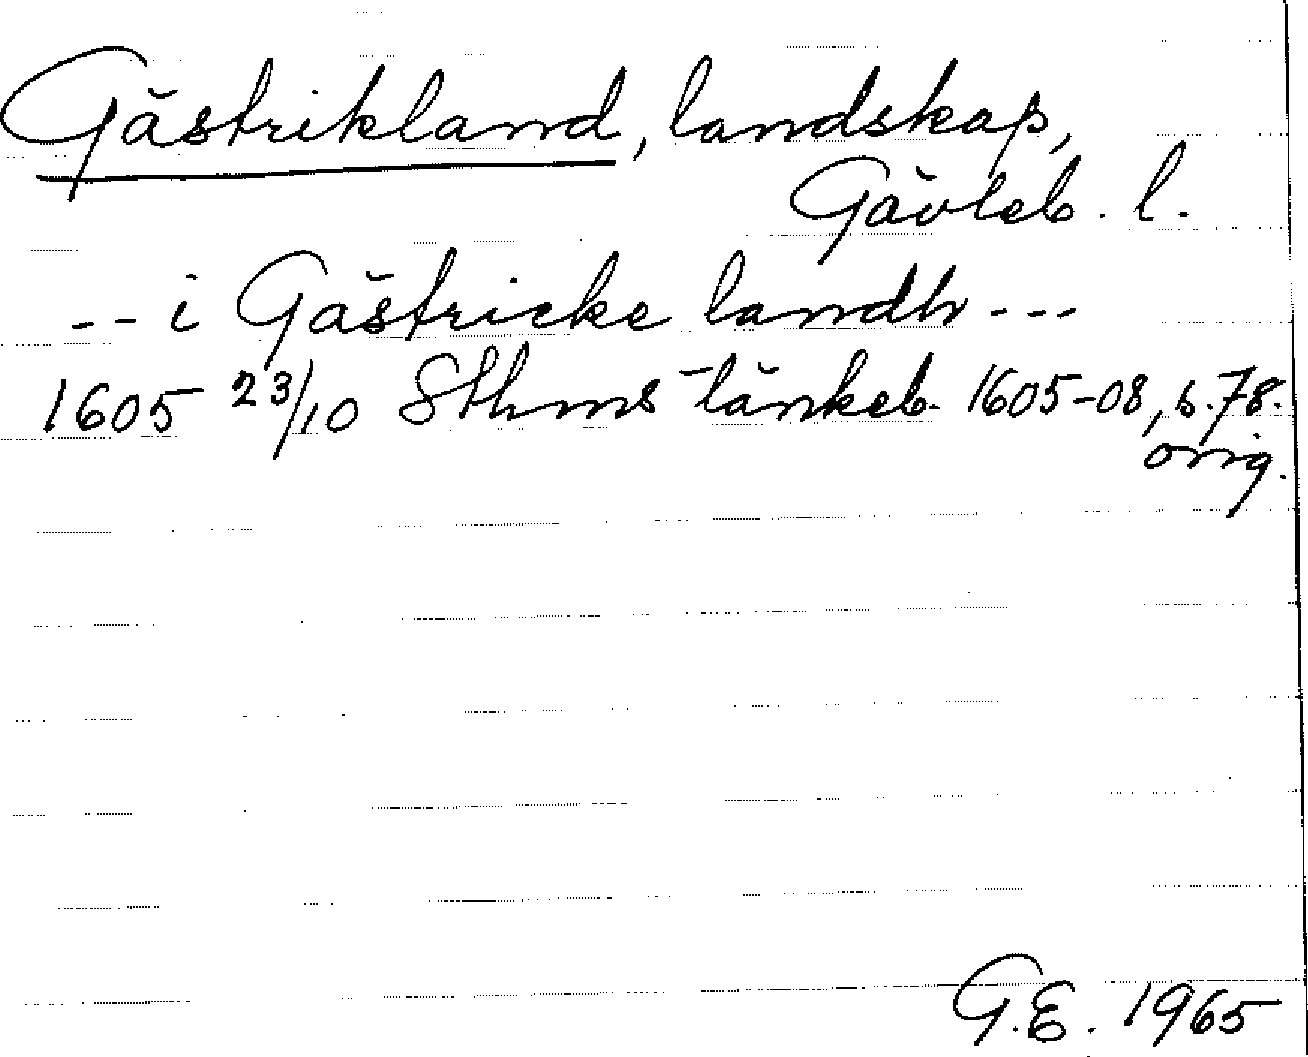 Gästrikland, landskap,
Gävleb. l.
-- i Gästricke landh ---
1605 23/10 Sthms tänkeb. 1605-08, s. 78.
orig.
G.E. 1965